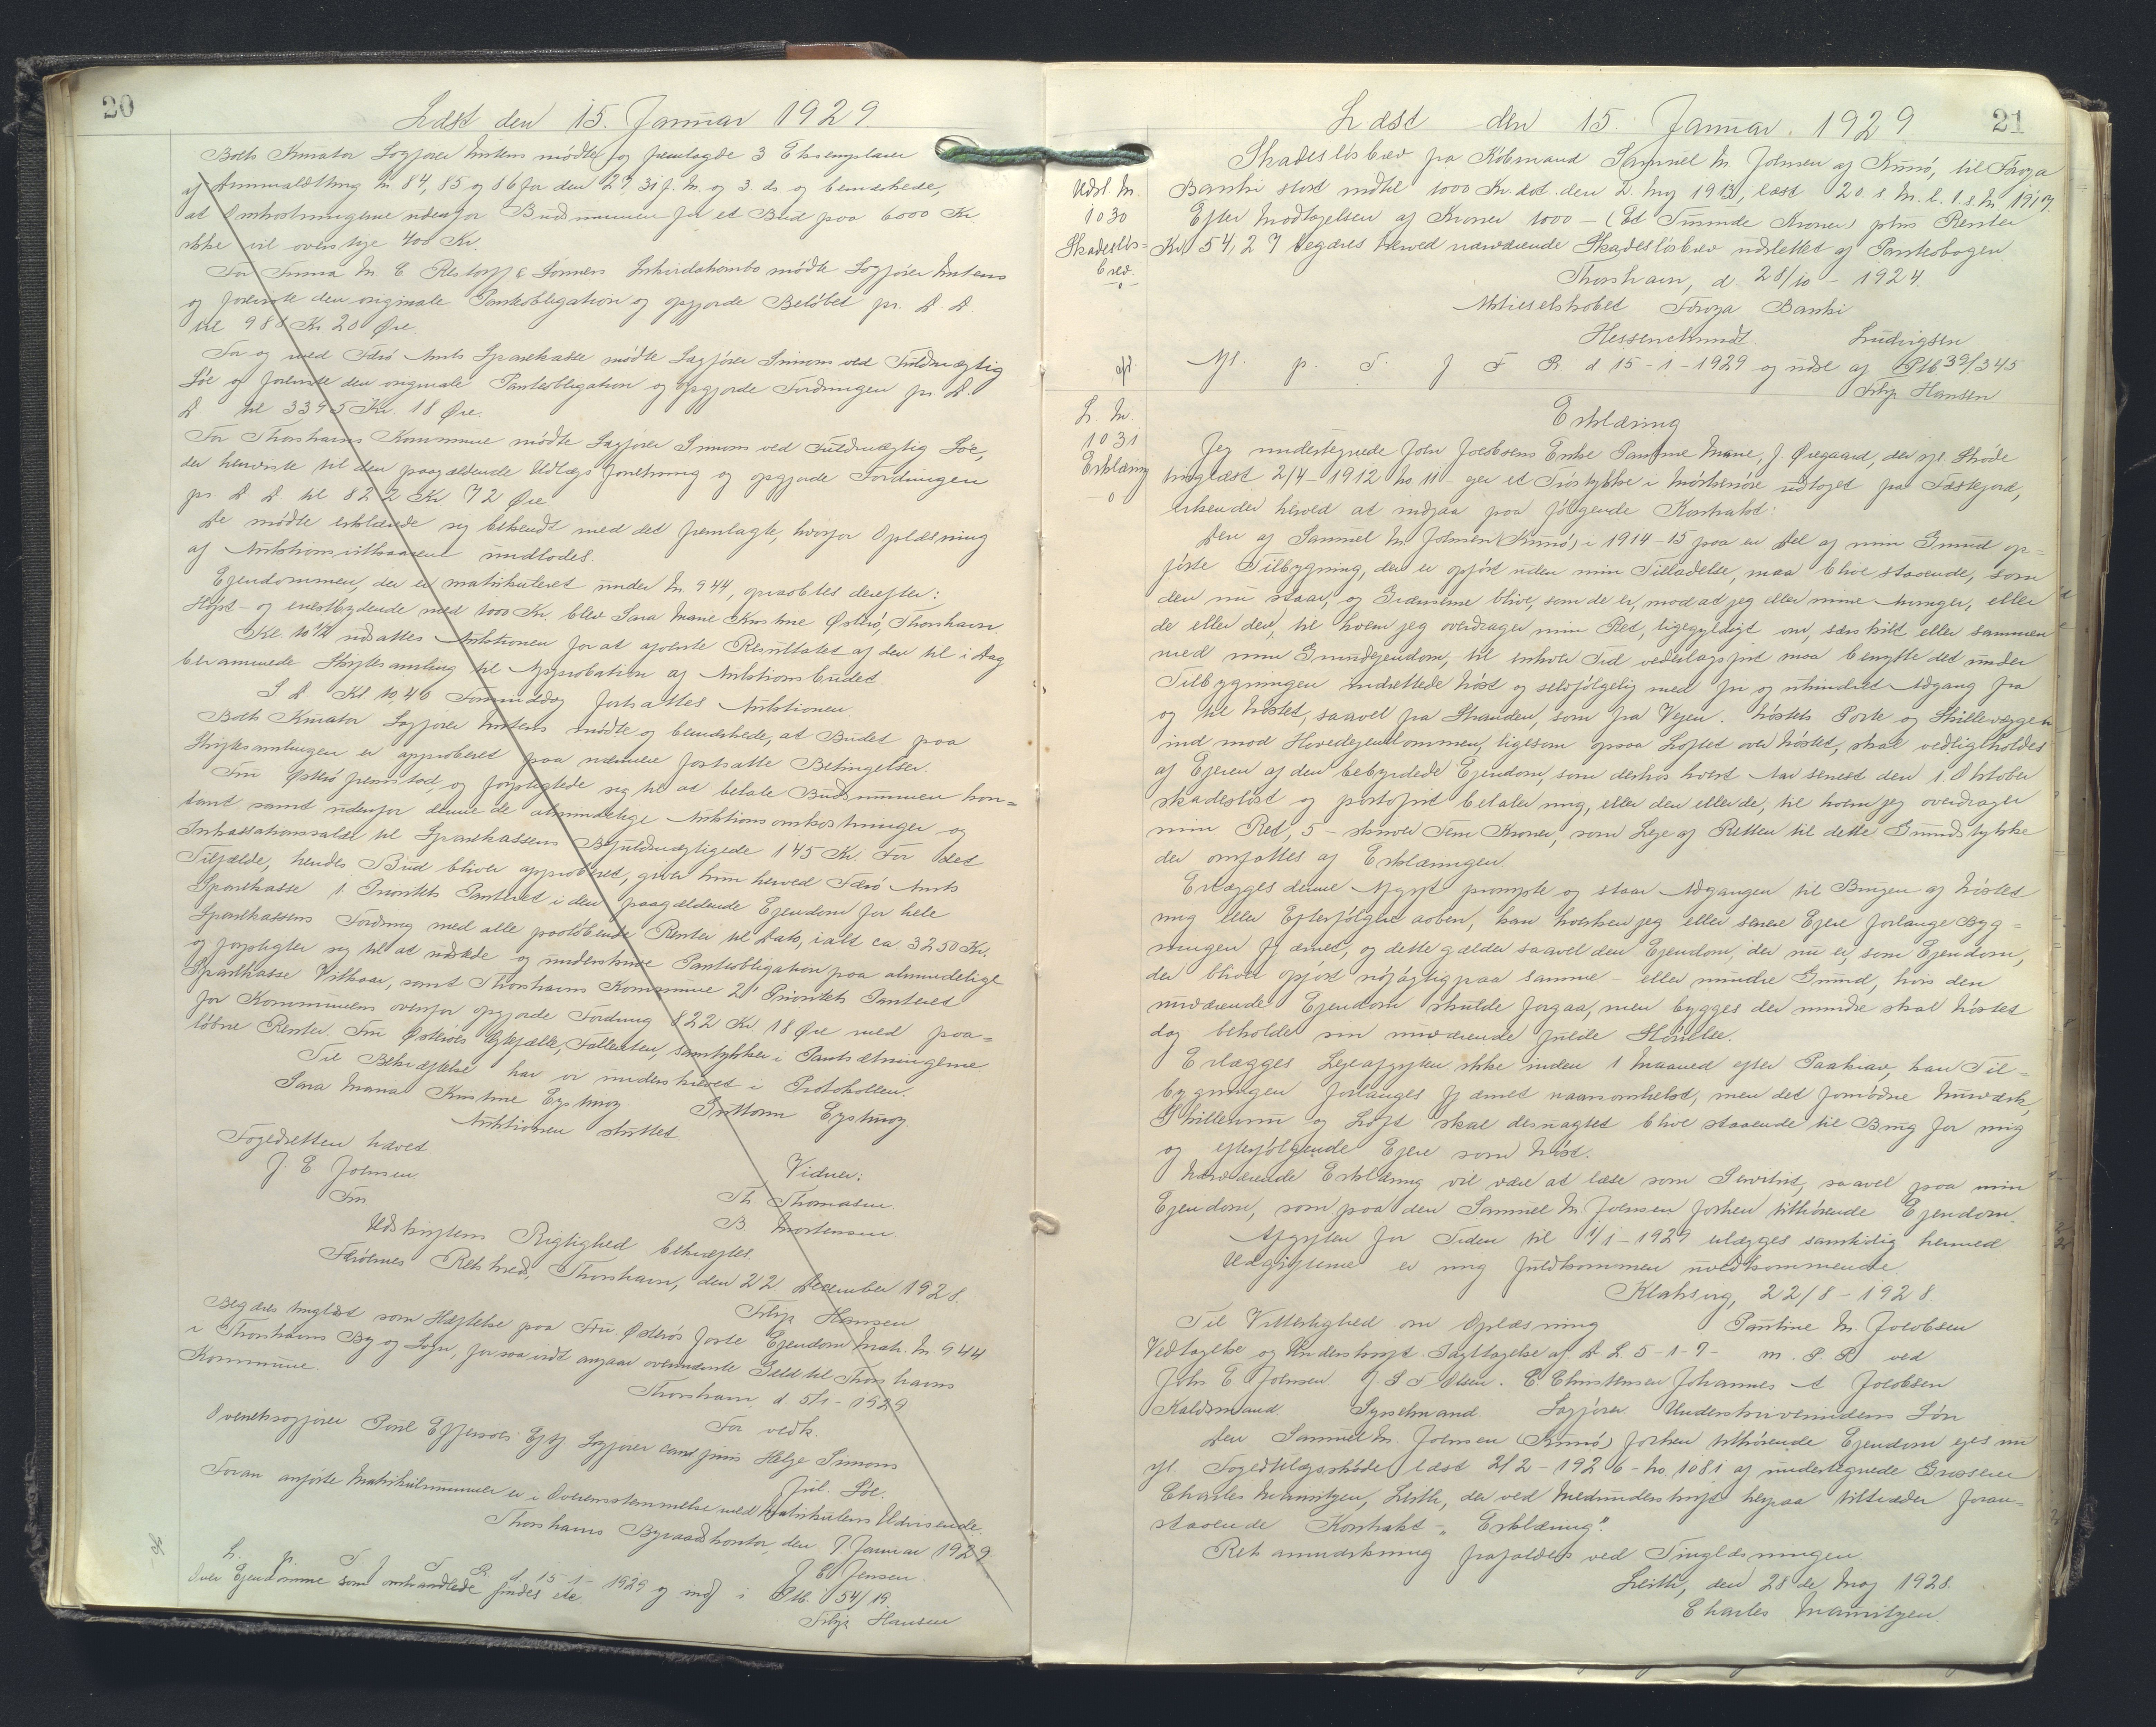 20
Læst den 15. Januar 1929.
Boets Kurator Sagfører Mortens mødte og fremlagde 3 Eksemplarer
af Dimmalætting Nr. 84, 85 og 86 for den 27, 31 f. M. og 3. ds og bemærkede,
at Omkostningerne udenfor Budsummen for et Bud paa 6000 Kr
ikke vil overstige 400 Kr.
For Firma M. C. Restorff & Sønners Inkvidekombo mødte Sagfører Mortens
og foreviste den originale Panteobligation og opgjorde Beløbet pr. D. D.
til 988 Kr 20 Øre.
For og med Færø Amts Sparekasse mødte Sagfører Simons ved Fuldmægtig
Löe og foreviste den originale Panteobligation og opgjorde Fordringen pr. D.
D. til 3395 Kr. 18 Øre.
For Thorshavns Kommune mødte Sagfører Simons ved Fuldmægtig Löe,
der henviste til den paagældende Udlægsforretning og opgjorde Fordringen
pr. D. D. til 822 Kr 72 Øre
De mødte erklærede sig bekendt med det fremlagte, hvorfor Oplæsning
af Auktionsvilkaarene undlodes.
Ejendommen, der er matrikuleret under Nr. 944, opraabtes derefter:
Højst- og enestbydende med 1000 Kr. blev Sara Marie Kristine Østerö, Thorshavn.
Kl. 10½ udsattes Auktionen for at afvente Resultatet af den til i Dag
berammede Skiftesamling til Approbation af Auktionsbudet.
S. D. Kl 10,46 Formiddag fortsattes Auktionen.
Boets Kurator Sagfører Mortens mødte og bemærkede, at Budet paa
Skiftesamlingen er approberet paa nærmere fortsatte Betingelser.
Fru Østerö fremstod og forpligtede sig til at betale Budsummen kon-
tant samt udenfor denne de almindelige Auktionsomkostninger og
Inkassationssalær til Sparekassens Befuldmægtigede 145 Kr. For det
Tilfælde, hendes Bud bliver approberet, giver hun herved Færö Amts
Sparekasse 1. Prioritets Panteret i den paagældende Ejendom for hele
Sparekassens Fordring med alle paaløbende Renter til Dato, ialt ca 3250 Kr.
og forpligter sig til at udstede og underskrive Panteobligation paa almindelige
Sparekasse Vilkaar, samt Thorshavns Kommune 2' Prioritets Panteret
for Kommunens ovenfor opgjorde Fordring 822 Kr. 18 Øre med paa-
løbne Renter. Fru Østerös Ægtefælle, Fallenten, samtykker i Pantsætningerne
Til Bekræftelse har vi underskrevet i Protokollen.
Sara Maria Kristine Eysturoy Guttorm Eysturoy
Auktionen sluttet.
Fogedretten hævet
J. E Johnsen Vidner:
Fm Th Thomasen.
B Mortensen
Udskriftens Rigtighed bekræftes.
Færöernes Retskreds, Thorshavn, den 22 December 1928.
Filip Hansen
Begæres tinglæst som Hæftelse paa Fru Østerös forte Ejendom Matr. Nr. 944
i Thorshavns By og Sogn, forsaavidt angaar ovennævnte Gæld til Thorshavns
Kommune.
Thorshavn, d 5/1 - 1929
For vedk.
Overretssagfører Poul Effersøes Eftf Sagfører cand juris Helge Simons
Jul. Löe.
Foran anførte Matrikulnummer er i Overensstemmelse med Matrikulens Udvisende.
Thorshavns Byraadskontor, den 7 Januar 1929
J E Jensen.
L. p. T. f F. R. d. 15-1-1929 og indf i Ptb. 54/19.
Over Ejendomme som omhandlede findes etc.
Filip Hansen
21
Læst den 15. Januar. 1929
Udsl. Nr.
1030
Skadesløs-
brev
Skadesløsbrev fra Købmand Samuel M. Johnsen af Kunö, til Föroya
Banki stort indtil 1000 Kr. dat. den 2. Maj 1913, læst 20. s. M. l. 1. s. M 1917.
Efter Modtagelsen af Kroner 1000 - (Et Tusinde Kroner) plus Renter
Kr. 54,27 begæres herved nærværende Skadesløsbrev udslettet af Pantebogen.
Thorshavn, d. 28/10 - 1924.
Aktieselskabet Föroya Banki
Hessenclmndt. Ludvigsen
Afl. p. T. f F R d 15-1-1929 og udsl af Ptb 39/345
Filip Hansen
L. Nr.
1031
Erklæring
Erklæring
Jeg undertegnede John Jacobsens Enke Pauline Marie, f. Øregaard, der efl. Skøde
tinglæst 2/4-1912 No. 11 - ejer et Trøstykke i Mörkenöre udtaget fra Fæstejord,
erkender herved at indgaa paa følgende Kontrakt:
Den af Samuel M. Johnsen (Kunö) i 1914-15 paa en Del af min Grund op-
førte Tilbygning, der er opført uden min Tilladelse, maa blive staaende, som
den nu staar, og Grænserne blive, som de er, mod at jeg eller mine Arvinger, eller
de eller den, til hvem jeg overdrager min Ret, ligegyldigt om, særskilt eller sammen
med min Grundejendom, til enhver Tid vederlagsfrit maa benytte det under
Tilbygningen indrettede Nöst og selvfølgelig med fri og uhindret Adgang fra
og til Nöstet, saavel fra Stranden, som fra Vejen. Nöstets Porte og Skillevæggen
ind mod Hovedejendommen, ligesom ogsaa Loftet over Nöstet, skal vedligeholdes
af Ejeren af den bebyrdede Ejendom, som derhos hvert Aar senest den 1. Oktober
skadesløst og portofrit betaler mig, eller den eller de, til hvem jeg overdrager
min Ret, 5 - skriver Fem Kroner, som Leje af Retten til dette Grundstykke
der omfattes af Erklæringen.
Erlægges denne Afgift prompte og staar Adgangen til Brugen af Nöstet
mig eller Efterfølgere aaben, kan hverken jeg eller senere Ejere forlange Byg-
ningen fjærnet, og dette gælder saavel den Ejendom, der nu er, som Ejendom,
der bliver opført nøjagtig paa samme - eller mindre Grund, hvis den
nuværende Ejendom skulde forgaa, men bygges der mindre skal Nöstet
dog beholde sin nuværende fulde Størrelse.
Erlægges Lejeafgiften ikke inden 1 Maaned efter Paakrav, kan Til-
bygningen forlanges fjærnet naarsomhelst, men det fornødne Murværk,
Skillerum og Loft skal desuagtet blive staaende til Brug for mig
og efterfølgende Ejere som Nöst.
Nærværende Erklæring vil være at læse som Servitut, saavel paa min
Ejendom, som paa den Samuel M. Joensen forhen tilhørende Ejendom.
Afgiften for Tiden til 1/1-1929 erlægges samtidig hermed
Udgifterne er mig fuldkommen uvedkommende.
Klaksvig, 22/8 - 1928.
Til Vitterlighed om Oplæsning Pauline M. Jacobsen
Vedtagelse og Underskrift. Iagttagelse af. D. L. 5-1-7- m. P. P. ved
Johs E. Joensen J. S. F Olsen. E. Christensen Johannes A Jacobsen
Kaldsmand. Sysselmand Sagfører. Underskriverindens Søn
Den Samuel M. Joensen (Kunö) forhen tilhørende Ejendom ejes nu
efl. Fogedudlægsskøde læst 2/2-1926 - No 1081 af undertegnede Grosserer
Charles Mauritzen, Leith, der ved Medunderskrift herpaa tiltræder foran-
staaende Kontrakt - "Erklæring".
Ret anmærkning frafaldes ved Tinglæsningen.
Leith, den 28 de Maj 1928.
Charles Mauritzen.